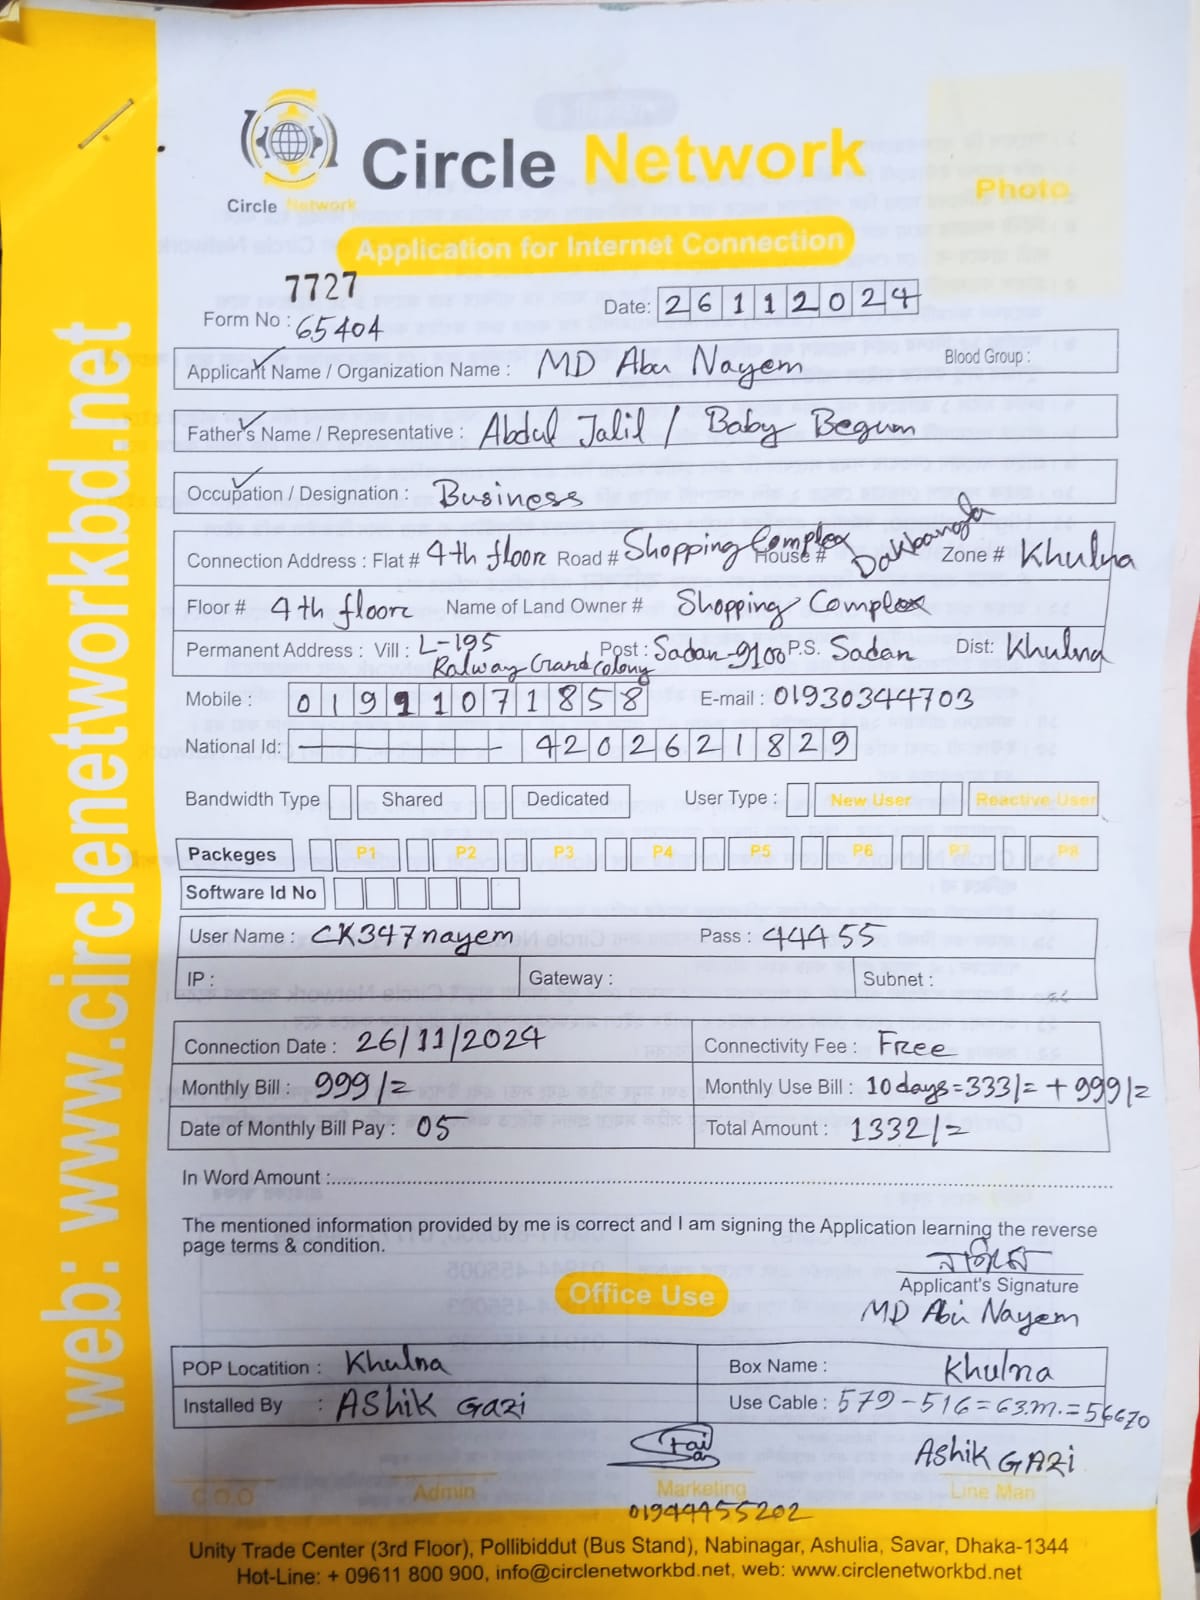 Circle Network
Circle Network
Photo
Application for Internet Connection
7727
Form No : 65404
Date: 26112024
Applicant Name / Organization Name : MD Abu Nayem Blood Group :
Father's Name / Representative : Abdul Jalil / Baby Begum
Occupation / Designation : Business
Connection Address : Flat # 4th floore Road # Shopping Complex House # Dakbangla Zone # Khulna
Floor # 4th floore Name of Land Owner # Shopping Complex
Permanent Address : Vill : L-195 Post : Sadan-9100 P.S. Sadan Dist: Khulna
Ralway Grand Colony
Mobile : 01991071858 E-mail : 01930344703
National Id: 4202621829
Bandwidth Type Shared Dedicated User Type : New User Reactive User
Packeges P1 P2 P3 P4 P5 P6 P7 P8
Software Id No
User Name : CK347nayem Pass : 44455
IP : Gateway : Subnet :
Connection Date : 26/11/2024 Connectivity Fee : Free
Monthly Bill : 999/= Monthly Use Bill : 10 days=333/= + 999/=
Date of Monthly Bill Pay : 05 Total Amount : 1332/=
In Word Amount :
The mentioned information provided by me is correct and I am signing the Application learning the reverse
page terms & condition.
Applicant's Signature
MD Abu Nayem
Office Use
POP Locatition : Khulna Box Name : Khulna
Installed By : Ashik Gazi Use Cable : 579-516=63.m.=56670
Ashik GAZi
C.O.O Admin Marketing Line Man
01944455202
Unity Trade Center (3rd Floor), Pollibiddut (Bus Stand), Nabinagar, Ashulia, Savar, Dhaka-1344
Hot-Line: + 09611 800 900, info@circlenetworkbd.net, web: www.circlenetworkbd.net
web: www.circlenetworkbd.net